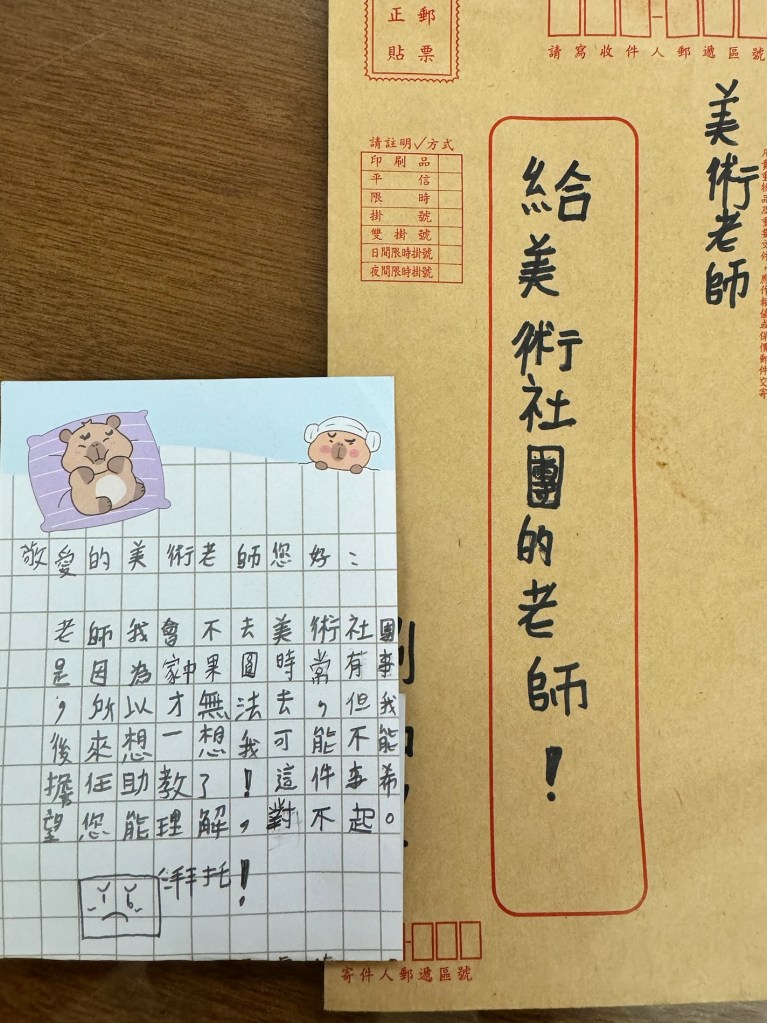 敬愛的美術老師您好：
老師我會不去美術社團
是因為家中果園時常有事
，所以才無法去，但我
後來想一想我可能不能
擔任助教了！這件事希
望您能理解，對不起。
拜托！
正郵
貼票
請寫收件人郵遞區號
請註明✓方式
印刷品
平信
限時
掛號
雙掛號
日間限時掛號
夜間限時掛號
給美術社團的老師！
美術老師
寄件人郵遞區號